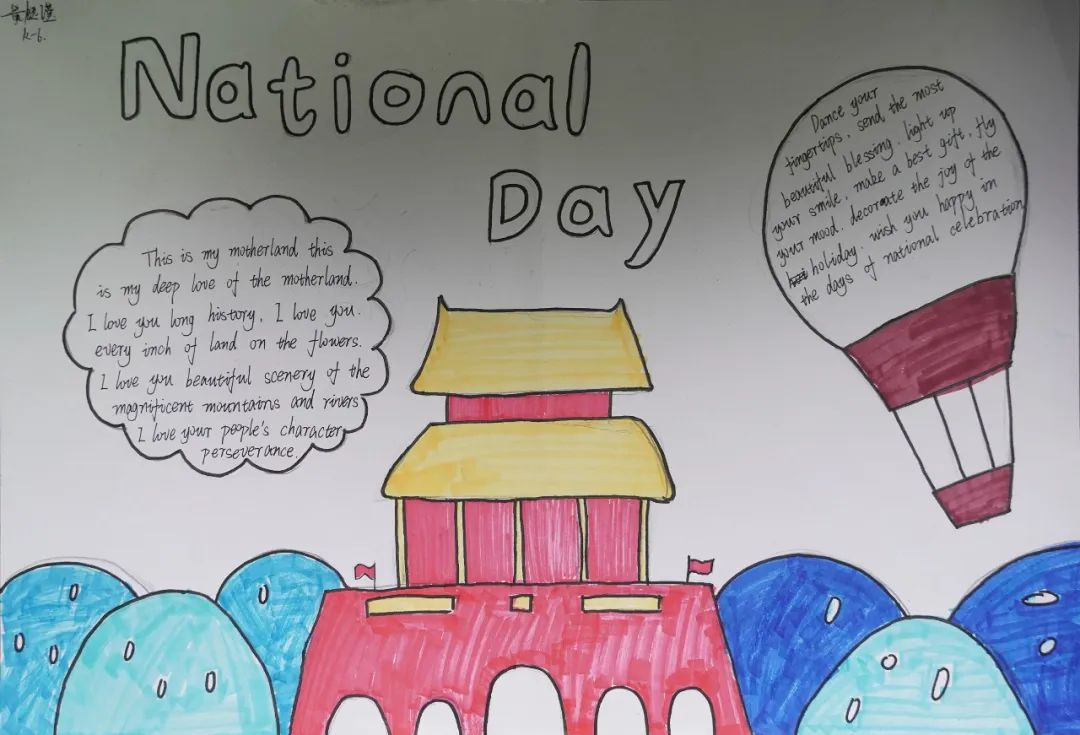 k-6.
National
Day
This is my motherland this
is my deep love of the motherland.
I love you long history, I love you.
every inch of land on the flowers.
I love you beautiful scenery of the
magnificent mountains and rivers
I love your people's character
perseverance.
Dance your
fingertips, send the most
beautiful blessing, light up
your smile, make a best gift, fly
your mood, decorate the joy of the
holiday, wish you happy in
the days of national celebration